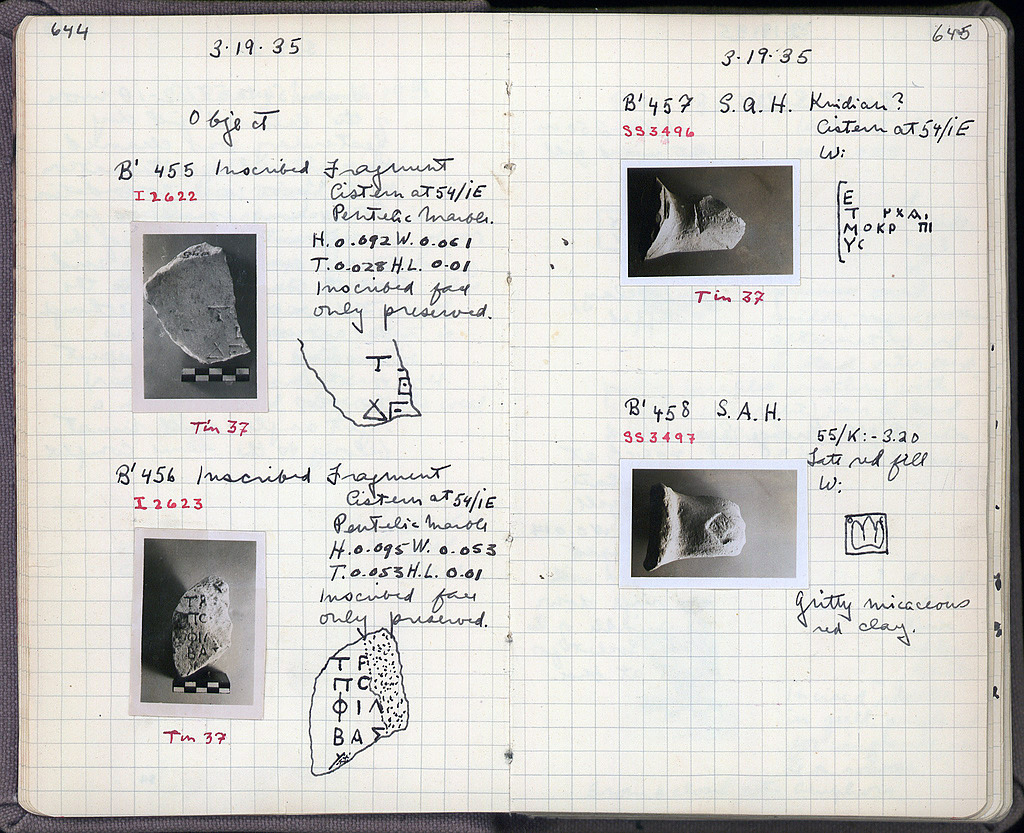 644
3·19·35
Object
B' 455 Inscribed Fragment
I 2622
Cistern at 54/ΙΕ
Pentelic Marble.
H. 0.092 W. 0.061
T. 0.028 H.L. 0.01
Inscribed face
only preserved.
Τ
Tin 37
B' 456 Inscribed Fragment
I 2623
Cistern at 54/ΙΕ
Pentelic Marble
H. 0.095 W. 0.053
T. 0.053 H.L. 0.01
Inscribed face
only preserved.
Τ Ρ
Π Ο
Φ Ι Λ
Β Α Σ
Tin 37
645
3·19·35
B' 457 S.A.H. Knidian?
SS3496
Cistern at 54/ΙΕ
W:
Ε
Τ ΡΧΑ
ΜΟΚΡ ΠΙ
ΥС
Tin 37
B' 458 S.A.H.
SS3497
55/Κ:-3.20
Late red fill
W:
Gritty micaceous
red clay.